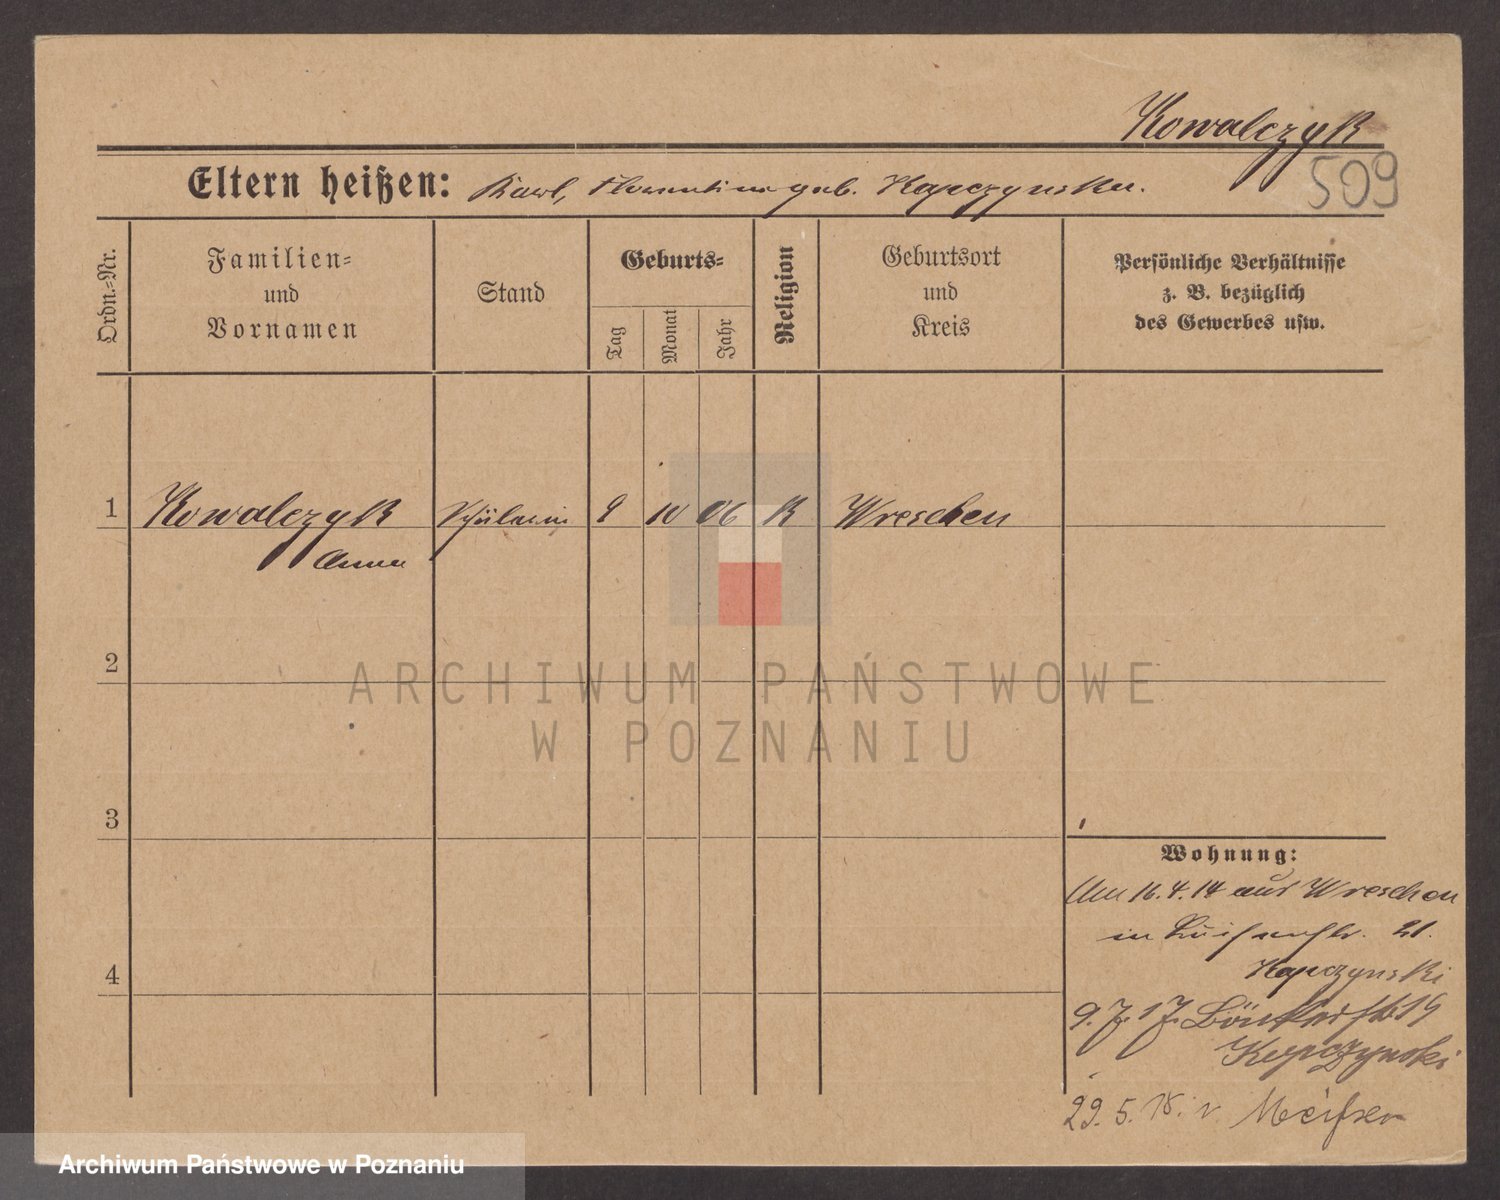 Kowalczyk
509
Eltern heißen: Karl, Florentine geb. Kapczynska.
Ordn.-Nr.
Familien-
und
Vornamen
Stand
Geburts-
Tag
Monat
Jahr
Religion
Geburtsort
und
Kreis
Persönliche Verhältnisse
z. B. bezüglich
des Gewerbes usw.
1 Kowalczyk Schülerin 9 10 06 K Wreschen
Anna
2
ARCHIWUM PAŃSTWOWE
W POZNANIU
3
Wohnung:
Am 16.4.14 aus Wreschen
in Luisenstr. 21.
Kapczynski
4
9. 7. 17.
Kapczynski
29. 5. 18. n. Meißen
Archiwum Państwowe w Poznaniu